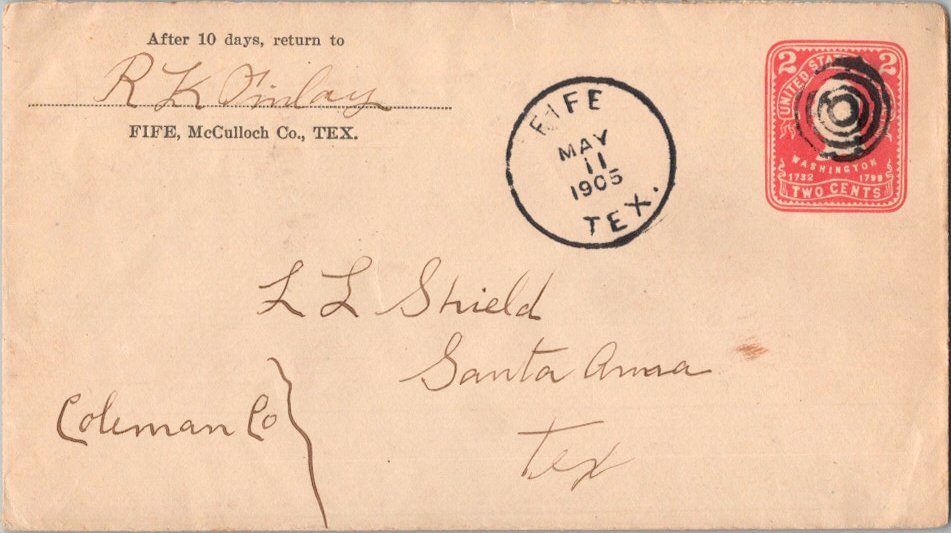 After 10 days, return to
R K Finlay
FIFE, McCulloch Co., TEX.
FIFE
MAY
11
1905
TEX.
2 2
UNITED STATES
WASHINGTON
1732 1799
TWO CENTS
L L Shield
Santa Anna
Coleman Co
Tex